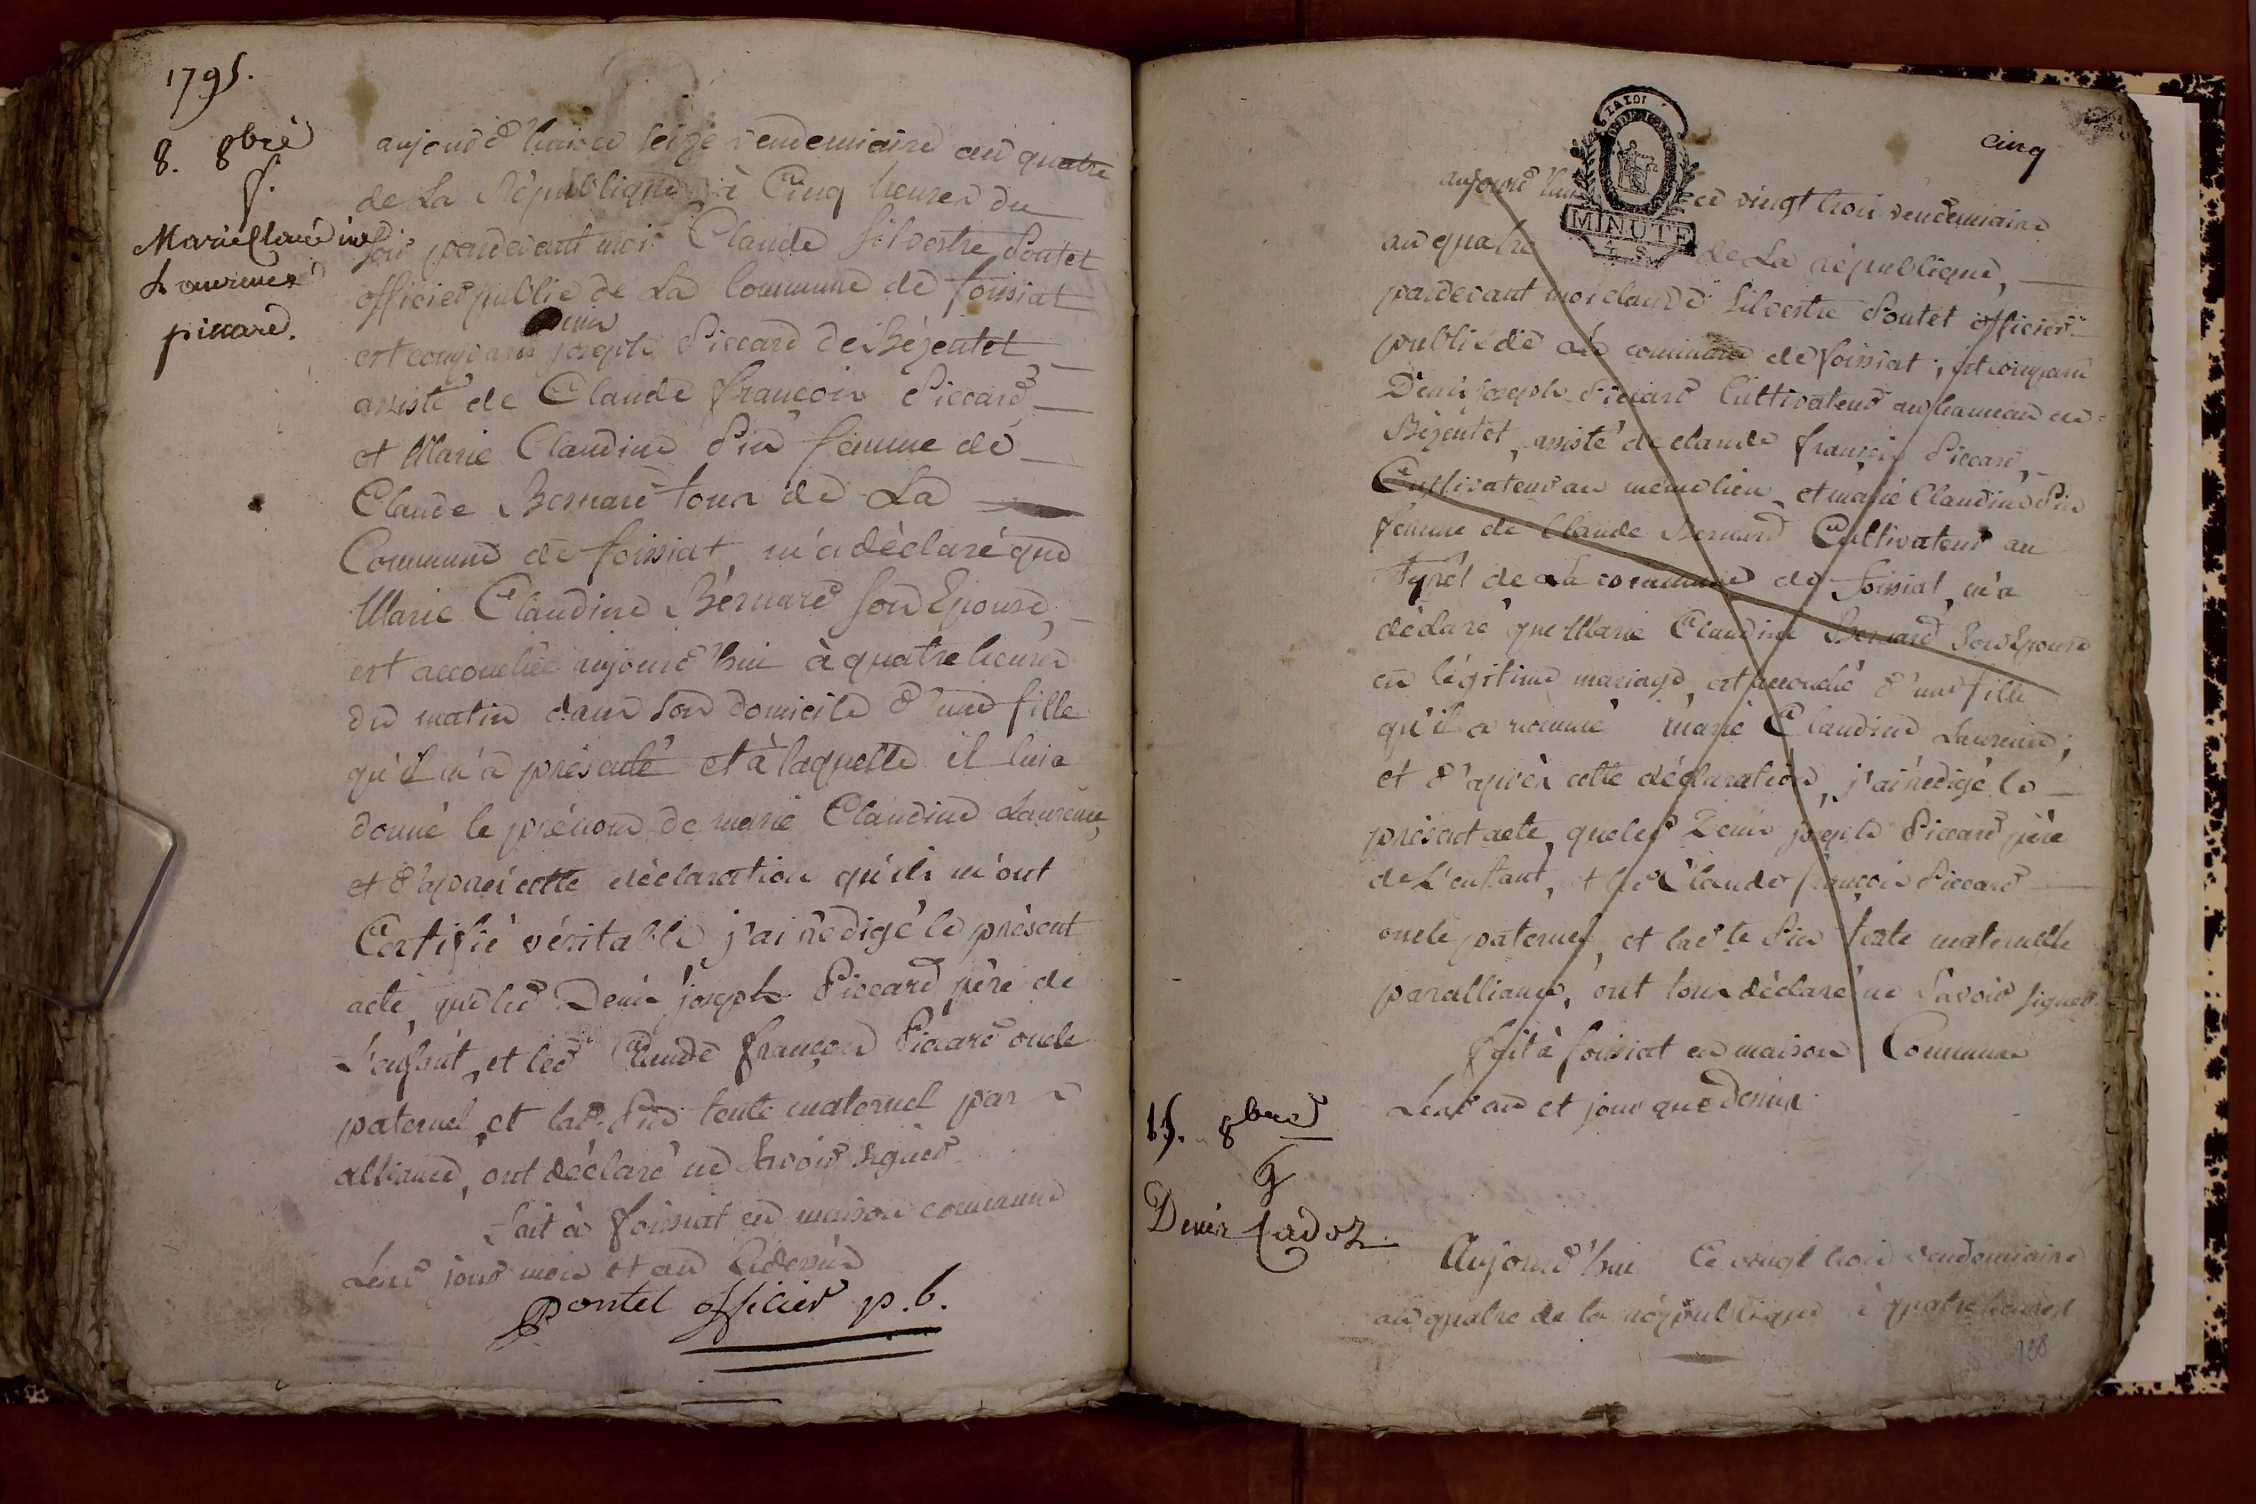 1795.
8. 8bre
f.
Marie Claudine
Laurence
piccard.
aujourd'huice seize vendemiaire an quatre
de La République à Cinq heures du
soir pardevant moi Claude Silvestre Pontet
officier public de La Commune de foissiat
est comparu Denis joseph Piccard de Béjentet
assisté de Claude françois Piccard
et Marie Claudine Pin femme de
Claude Bernard tous de La
Commune de foissiat, m'a déclaré que
Marie Claudine Bernard son Epouse,
est accouchée aujourd'hui à quatre heures
du matin dans son domicile d'une fille
qu'il m'a présenté et à laquelle il lui a
donné le prénom de marie Claudine Laurence,
et d'après cette déclaration qu'ils m'ont
Certifié véritable j'ai rédigé le présent
acte, que led Denis joseph Piccard père de
L'enfant, et led Claude françois Piccard oncle
paternel, et lad. Pin tente maternel par
alliance, ont déclaré ne Savoir signer
fait à foissiat en maison commune
Lesd jour mois et an Cidevin
Pontet officier p.b.
LA LOI
MINUTE
4 S
cinq
aujourd'hui ce vingt trois vendemiaire
an quatre de La république,
pardevant moi claude Silvestre Pontet officier
public de La commune de foissiat; est comparu
Denis joseph Piccard Cultivateur au hameau de
Béjentet, assisté de claude françois Piccard,
Cultivateur au même lieu, et marie Claudine Pin
femme de Claude Bernard Cultivateur au
de La commune de foissiat, m'a
déclaré que Marie Claudine Bernard son Epouse
en légitime mariage, est accouché d'une fille
qu'il a nommé marie Claudine Laurence;
et d'après cette déclaration, j'ai rédigé le
présent acte, que led Denis joseph Piccard père
de L'enfant, et led Claude françois Piccard
oncle paternel, et lad te Pin tente maternelle
par alliance, ont tous déclaré ne Savoir signer
fait à foissiat en maison Commune
Lesd an et jour que Dessus
15. 8bre
g
Denis Cadoz
Aujourd'hui Ce vingt trois vendemiaire
an quatre de la république à quatre heures
138